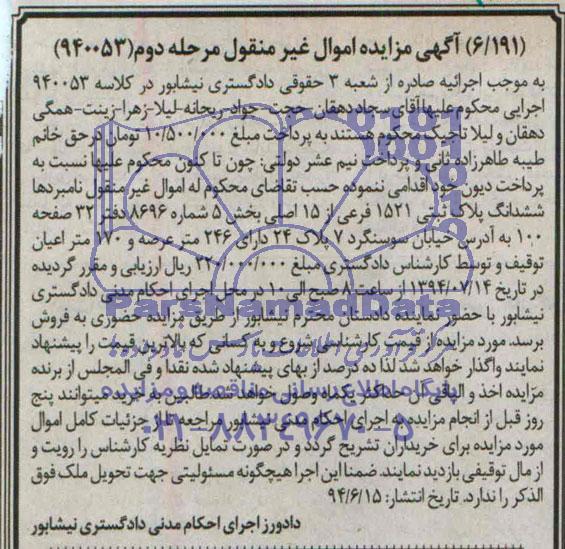 (۶/۱۹۱) آگهی مزایده اموال غیر منقول مرحله دوم(۹۴۰۰۵۳)
به موجب اجرائیه صادره از شعبه ۳ حقوقی دادگستری نیشابور در کلاسه ۹۴۰۰۵۳
اجرایی محکوم علیها آقای سجاد دهقان-حجت-جواد-ریحانه-لیلا-زهرا-زینت-همگی
دهقان و لیلا تاجیک محکوم هستند به پرداخت مبلغ ۱۰/۵۰۰/۰۰۰ تومان در حق خانم
طیبه طاهرزاده ثانی و پرداخت نیم عشر دولتی: چون تا کنون محکوم علیها نسبت به
پرداخت دیون خود اقدامی ننموده حسب تقاضای محکوم له اموال غیر منقول نامبردها
ششدانگ پلاک ثبتی ۱۵۲۱ فرعی از ۱۵ اصلی بخش ۵ شماره ۸۶۹۶ دفتر ۳۲ صفحه
۱۰۰ به آدرس خیابان سوسنگرد ۷ پلاک ۲۴ دارای ۲۴۶ متر عرصه و ۱۷۰ متر اعیان
توقیف و توسط کارشناس دادگستری مبلغ ۳۲۰/۰۰۰/۰۰۰ ریال ارزیابی و مقرر گردیده
در تاریخ ۱۳۹۴/۰۷/۱۴ از ساعت ۸ صبح الی ۱۰ در محل اجرای احکام مدنی دادگستری
نیشابور با حضور نماینده دادستان محترم نیشابور از طریق مزایده حضوری به فروش
برسد. مورد مزایده از قیمت کارشناسی شروع و به کسانی که بالاترین قیمت را پیشنهاد
نمایند واگذار خواهد شد لذا ده درصد از بهای پیشنهاد شده نقدا و فی المجلس از برنده
مزایده اخذ و الباقی آن حداکثر یکماه وصول خواهد شد طالبین به خرید میتوانند پنج
روز قبل از انجام مزایده به اجرای احکام مدنی نیشابور مراجعه تا از جزئیات کامل اموال
مورد مزایده برای خریداران تشریح گردد و در صورت تمایل نظریه کارشناس را رویت و
از مال توقیفی بازدید نمایند. ضمنا این اجرا هیچگونه مسئولیتی جهت تحویل ملک فوق
الذکر را ندارد. تاریخ انتشار: ۹۴/۶/۱۵
دادورز اجرای احکام مدنی دادگستری نیشابور
ParsNamadData
پایگاه اطلاع رسانی مناقصه و مزایده
۰۲۱-۸۸۳۴۹۶۷۰-۵